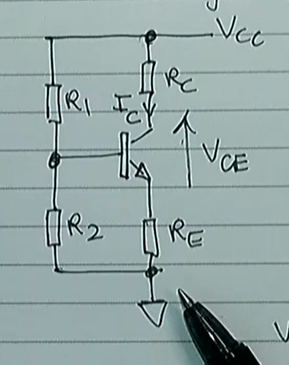 VCC
R1
RC
IC
VCE
R2
RE